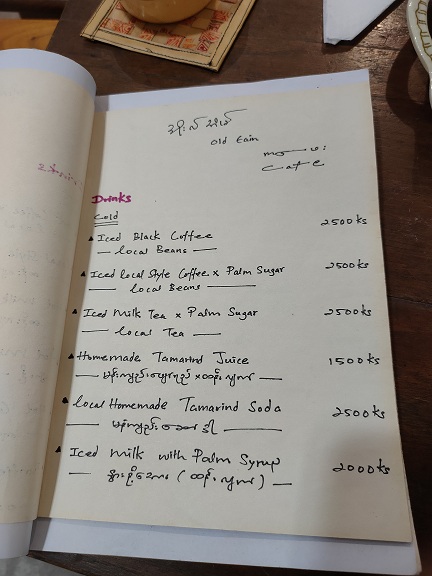 အိုးလ်အိမ်
old Eain
ကဖေး
cafe
Drinks
Cold
Iced Black Coffee 2500 ks
— local Beans —
Iced local style Coffee x Palm Sugar 2500 ks
— local Beans —
Iced Milk Tea x Palm Sugar 2500 ks
— local Tea —
Homemade Tamarind Juice 1500 ks
local Homemade Tamarind Soda 2500 ks
Iced Milk with Palm Syrup 2000 ks